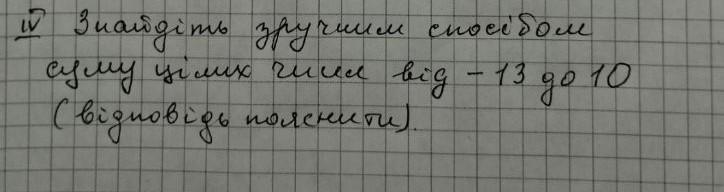 IV Знайдіть зручним способом
суму цілих чисел від -13 до 10
(відповідь пояснити).